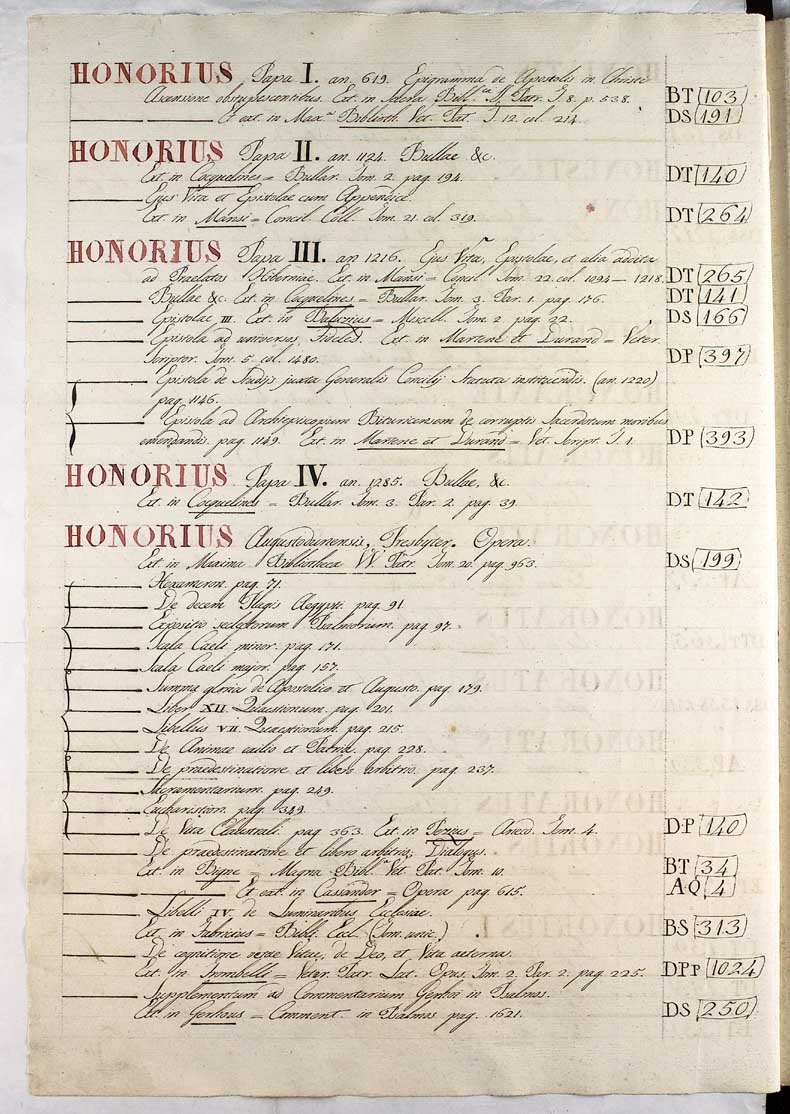 HONORIUS Papa I. an. 619. Epigramma de Apostolis in Christi
Ascensione obstupescentibus. Ext. in Bibl.ca V. Patr. T. 8. p. 538. BT 103
Et ext. in Max.a Biblioth. Vet. Pat. T. 12. col. 214. DS 191
HONORIUS Papa II. an. 1124. Bullae &c.
Ext. in Cocquelines = Bullar. Tom. 2. pag. 194. DT 140
Ejus Vita et Epistolae cum Appendice.
Ext. in Mansi = Concil. Coll. Tom. 21. col. 319. DT 264
HONORIUS Papa III. an 1216. Ejus Vita, Epistolae, et alia addita
ad Praelatos Hiberniae. Ext. in Mansi = Concil. Tom. 22. col. 1094 — 1218. DT 265
Bullae &c. Ext. in Cocquelines = Bullar. Tom. 3. Par. 1. pag. 176. DT 141
Epistolae III. Ext. in Baluzius = Miscell. Tom. 2. pag. 22. DS 166
Epistola ad universos Fideles. Ext. in Martene et Durand = Veter.
Scriptor. Tom. 5. col. 1480. DP 397
Epistola de Studijs juxta Generalis Concilij Statuta instituendis. (an. 1220)
pag. 1146.
Epistola ad Archiepiscopum Bituricensem de corruptis Sacerdotum moribus
emendandis. pag. 1149. Ext. in Martene et Durand = Vet. Script. T. 1. DP 393
HONORIUS Papa IV. an. 1285. Bullae, &c.
Ext. in Cocquelines = Bullar. Tom. 3. Par. 2. pag. 39. DT 142
HONORIUS Augustodunensis, Presbyter. Opera.
Ext. in Maxima Bibliotheca VV. Patr. Tom. 20. pag. 963. DS 199
Hexameron. pag. 71.
De decem Plagis Aegypti. pag. 91.
Expositio selectorum Psalmorum. pag. 97.
Scala Caeli minor. pag. 171.
Scala Caeli major. pag. 157.
Summa gloria de Apostolico et Augusto. pag. 179.
Liber XII. Quaestionum. pag. 201.
Libellus VII. Quaestionum. pag. 215.
De Animae exilio et Patria. pag. 228.
De praedestinatione et libero arbitrio. pag. 237.
Sacramentarium. pag. 249.
Eucharistion. pag. 349.
De Vita Claustrali. pag. 363. Ext. in Pezius = Anecd. Tom. 4. DP 140
De praedestinatione et libero arbitrio, Dialogus.
Ext. in Bigne = Magna Bibl.a Vet. Pat. Tom. 10. BT 34
Et ext. in Cassander = Opera pag. 615. AQ 4
Libelli IV. de Luminaribus Ecclesiae.
Ext. in Fabricius = Bibl. Eccl. (Tom. unic.) BS 313
De cognitione verae Vitae, de Deo, et Vita aeterna.
Ext. in Trombelli = Veter. Patr. Lat. Opus. Tom. 2. Par. 2. pag. 225. DPp 1024
Supplementum ad Commentarium Gerhoi in Psalmos.
Ext. in Gerhous = Comment. in Psalmos pag. 1621. DS 250